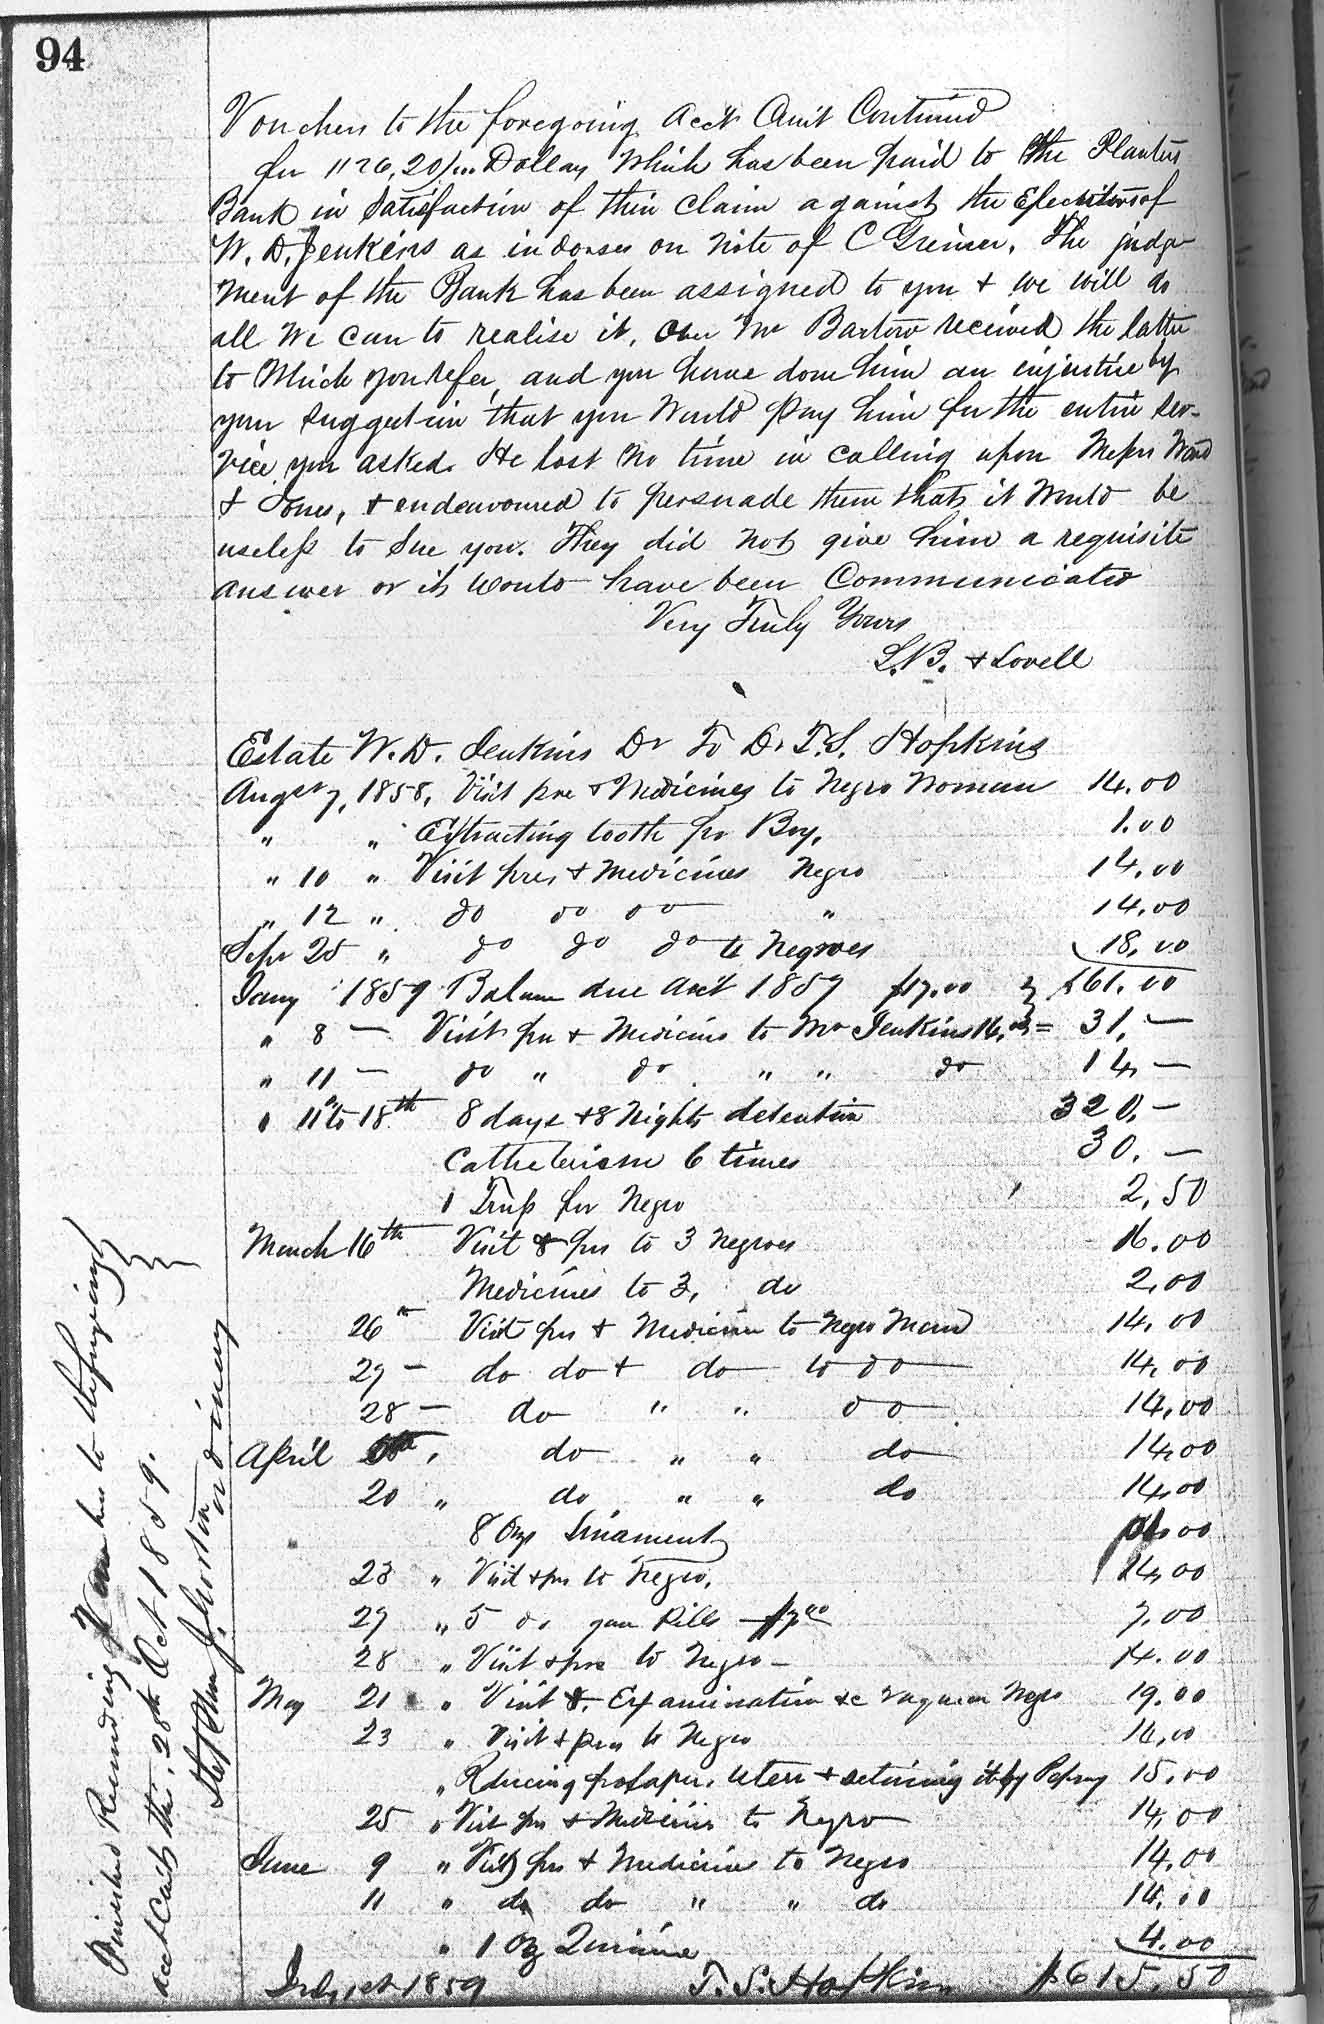 94
Vouchers to the foregoing Acct Curt Continued
for 1126,20/... Dollars Which has been paid to the Planters
Bank in Satisfaction of their Claim against the Executors of
W. D. Jenkins as indorser on Note of C Greiner. The judge-
ment of the Bank has been assigned to you & we will do
all we can to realise it. Our Mr Bartow received the latter
to Which you refer, and you have done him an injustice by
your suggestion that you Would pay him for the entire Ser-
vice you asked. He lost no time in calling upon Messrs Ward
& Jones, & endeavoured to persuade them that it Would be
useless to Sue you. They did not give him a requisite
answer or it would have been Communicated
Very Truly Yours
L.B. & Lovell
Estate W. D. Jenkins Dr To Dr T. S. Hopkins
Augst 7, 1858, Visit pre & Medicines to Negro Woman 14.00
" " Extracting tooth for Boy, 1.00
" 10 " Visit pres & Medicines Negro 14.00
" 12 " do do do " 14.00
Sepr 25 " do do do to Negroes 18.00
Jany 1859 Balance due Acct 1859 $17.00 $61.00
" 8 — Visit pre & Medicines to Mr Jenkins 14.00 = 31.—
" 11 — do " do " " do 14.—
" 11 to 18th 8 days & 8 Nights detention 320.—
Catheterism 6 times 30.—
1 Truss for Negro 2.50
March 16th Visit & pres to 3 Negroes 16.00
Medicines to 3, do 2.00
26th Visit pres & Medicine to Negro Man 14.00
27 — do do & do to do 14.00
28 — do " " do 14.00
April , do " " do 14.00
20 " do " " do 14.00
8 Ozs Linament .00
23 " Visit & pres to Negro, 14.00
27 " 5 do Pills — 7.00
28 " Visit & pre to Negro — 14.00
May 21 " Visit & Examination &c Negro 19.00
23 " Visit & pres to Negro 14.00
" Reducing prolapse. uteri & retaining it by Pessary 15.00
25 " Visit pres & Medicines to Negro 14.00
June 9 " Visit pres & Medicine to Negro 14.00
11 " do do " " do 14.00
" 1 Oz Quinine 4.00
July 1st 1859 T. S. Hopkins $615.50
Finished Recording Vouchers to the foregoing
acct Curt this, 28th Oct 1859.
Stephen J. Gordon
ordinary